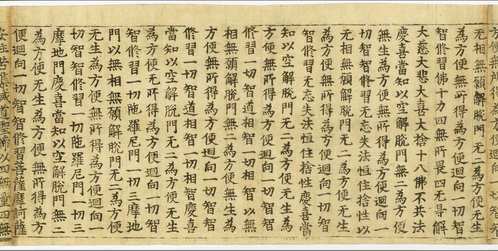 相無願解脫門無二為方便無生
為方便無所得為方便迴向一切智
智修習佛十力四無所畏四無礙解
大慈大悲大喜大捨十八佛不共法
慶喜當知以空解脫門無二為方便
無生為方便無所得為方便迴向一
切智智修習無忘失法恒住捨性以
無相無願解脫門無二為方便無生
為方便無所得為方便迴向一切智
智修習無忘失法恒住捨性慶喜當
知以空解脫門無二為方便無生為
方便無所得為方便迴向一切智智
修習一切智道相智一切相智以無
相無願解脫門無二為方便無生為
方便無所得為方便迴向一切智智
修習一切智道相智一切相智慶喜
當知以空解脫門無二為方便無生
為方便無所得為方便迴向一切智
智修習一切陀羅尼門一切三摩地
門以無相無願解脫門無二為方便
無生為方便無所得為方便迴向一
切智智修習一切陀羅尼門一切三
摩地門慶喜當知以空解脫門無二
為方便無生為方便無所得為方
便迴向一切智智修習菩薩摩訶薩